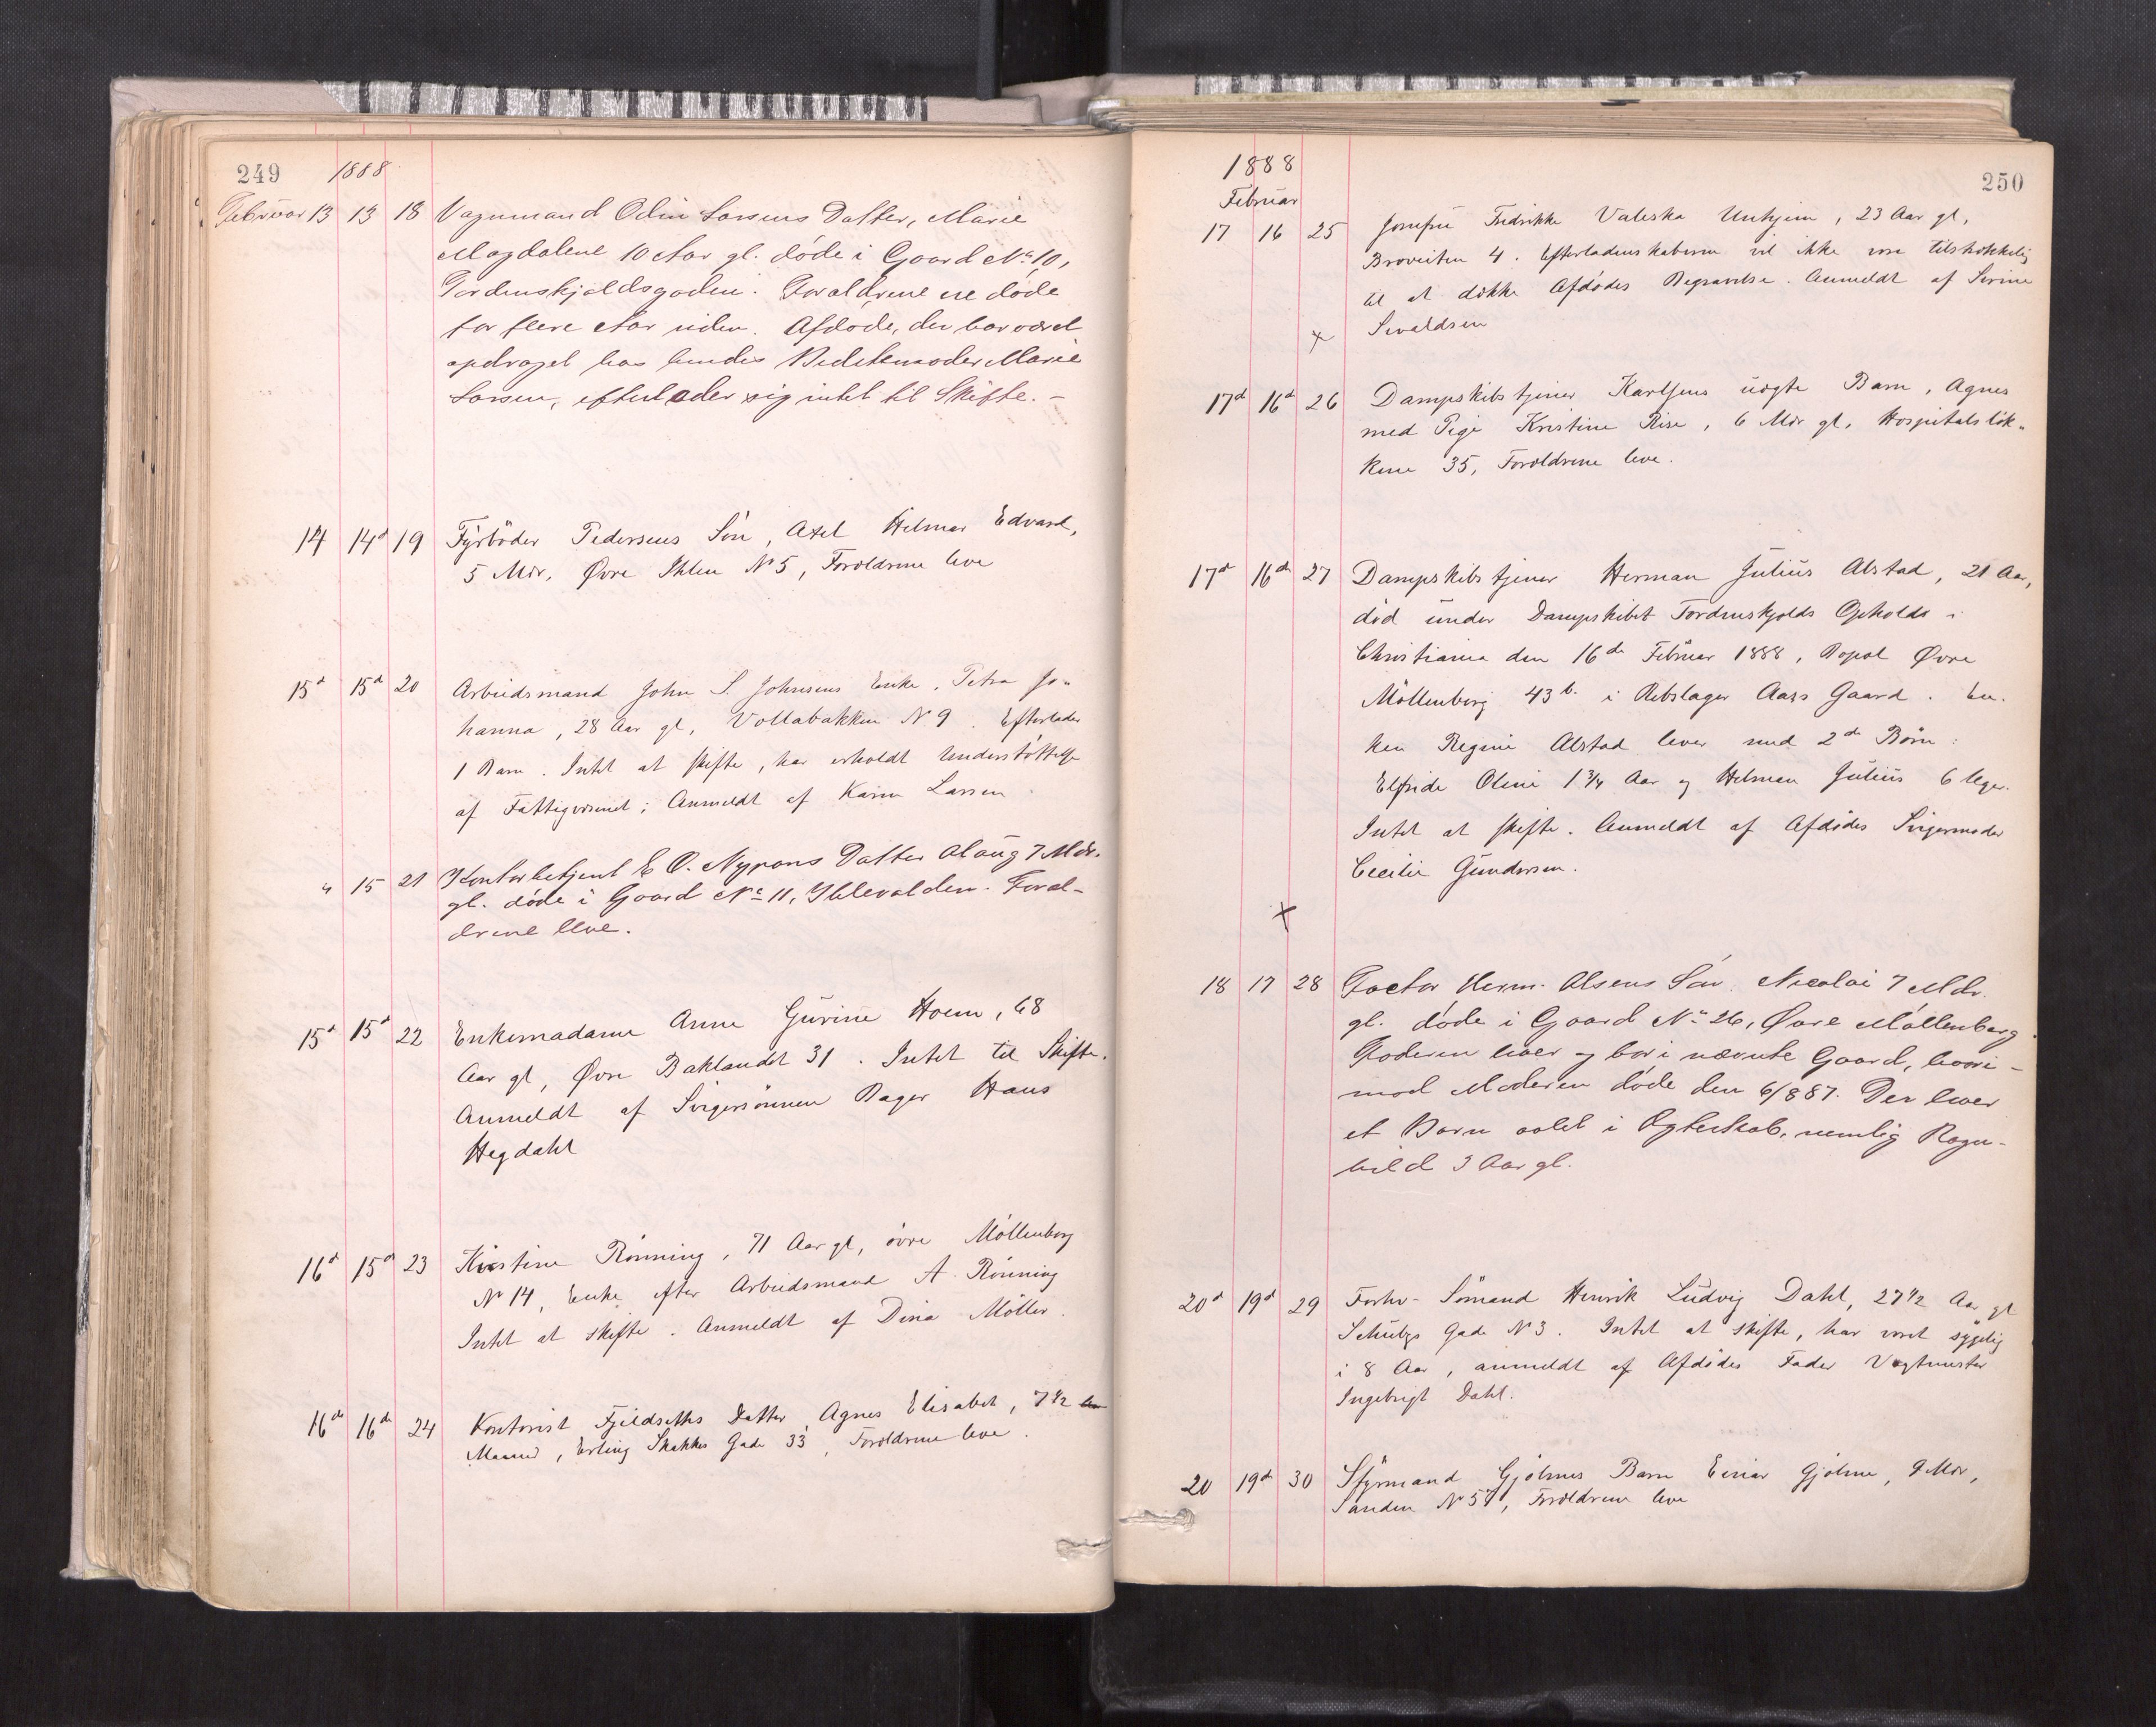 249 1888
Februar 13 13 18 Vognmand Odin Larsens Datter, Marie
Magdalene 10 Aar gl. døde i Gaard No 10,
Tordenskjoldsgaden. Forældrene ere døde
for flere Aar siden. Afdøde, der har været
opdraget hos hendes Bedstemoder Marie
Larsen, efterlader sig intet til Skifte. –
14 14d 19 Fyrbøder Pedersens Søn, Axel Hilmar Edvard,
5 Mdr, Øvre Ihlen No 5, Forældrene leve
15d 15d 20 Arbeidsmand John S. Johnsens Enke, Petra Jo„
hanna, 28 Aar gl, Vollabakken No 9. Efterlader
1 Barn. Intet at skifte, har erholdt Understøttelse
af Fattigvæsenet; Anmeldt af Karen Larsen.
" 15 21 Kontorbetjent E. O. Nypans Datter Alaug 7 Mdr.
gl. døde i Gaard No 11, Ihlevolden. Foræl-
drene leve.
15d 15d 22 Enkemadame Anne Gurine Hoem, 68
Aar gl, Øvre Baklandet 31. Intet til Skifte.
Anmeldt af Svigersønnen Bager Hans
Hegdahl
16d 15d 23 Kirstine Rønning, 71 Aar gl, øvre Møllenberg
No 14, Enke efter Arbeidsmand A. Rønning
Intet at skifte. Anmeldt af Dina Møller.
16de 16de 24 Kontorist Fjeldseths Datter, Agnes Elisabet, 7 1/2
Maaned, Erling Skakkes Gade 33, Forældrene leve.
1888 250
Februar
17 16 25 Jomfru Fredrikke Valeska Unhjem, 23 Aar gl,
Broveiten 4. Efterladenskaberne vil ikke være tilstrækkelig
til at dække Afdødes Begravelse. Anmeldt af Serine
x Sivaldsen
17d 16d 26 Dampskibstjener Karlsens uægte Barn, Agnes
med Pige Kristine Rise, 6 Mdr gl, Hospitalsløk„
kene 35, Forældrene leve.
17d 16de 27 Dampskibstjener Herman Julius Alstad, 21 Aar,
død under Dampskibet Tordenskjolds Ophold i
Christiania den 16de Februar 1888, Bopæl Øvre
Møllenberg 43b. i Rebslager Aags Gaard. En„
ken Regine Alstad lever med 2de Børn:
Elfride Oline 1 3/4 Aar og Helman Julius 6 Uger.
Intet at skifte. Anmeldt af Afdødes Svigermoder
Cecilie Gundersen.
x
18 17 28 Factor Herm. Olsens Søn Nicolai 7 Mdr.
gl. døde i Gaard No 26, Øvre Møllenberg.
Faderen lever og bor i nævnte Gaard, hvori-
mod Moderen døde den 6/8 87. Der lever
et Barn avlet i Ægteskab, nemlig Ragn-
hild 3 Aar gl.
20d 19d 29 Forhv. Sømand Henrik Ludvig Dahl, 27 1/2 Aar gl
Schultzs Gade No 3. Intet at skifte, har været sygelig
i 8 Aar, anmeldt af Afdødes Fader Vægtmester
Ingebrigt Dahl.
20 19d 30 Styrmand Gjølmes Barn Einar Gjølme, 9 Mdr,
Sanden No 57, Forældrene leve